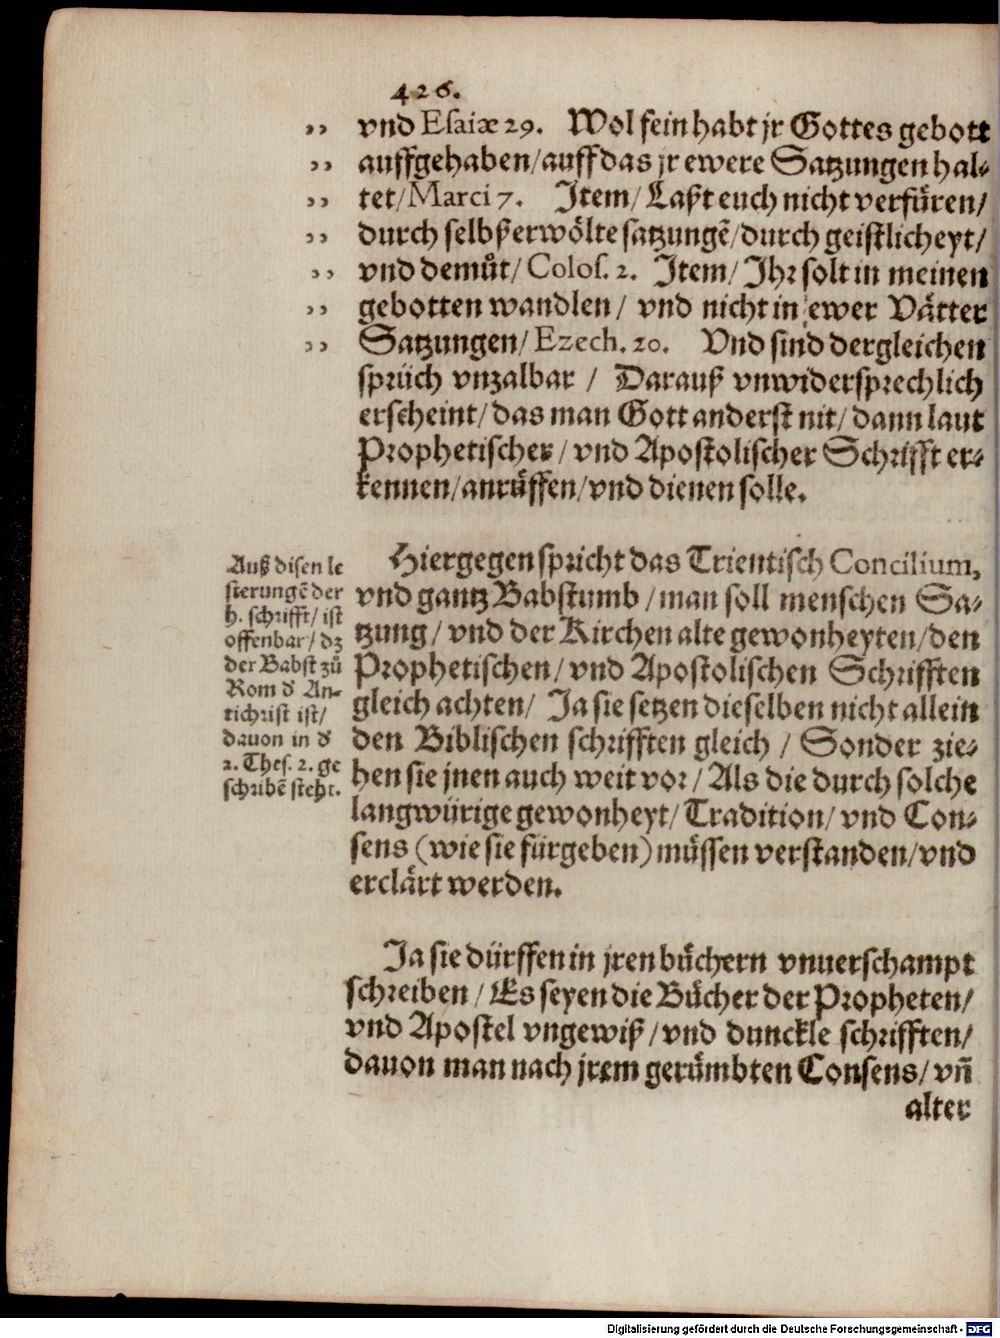 426.
„ vnd Esaiæ 29. Wol fein habt jr Gottes gebott
„ auffgehaben/auff das jr ewere Satzungen hal-
„ tet/Marci 7. Item/ Laßt euch nicht verfüren/
„ durch selbßerwölte satzungē/durch geistlicheyt/
„ vnd demůt/ Colos. 2. Item/ Ihr solt in meinen
„ gebotten wandlen/ vnd nicht in ewer Vätter
„ Satzungen/ Ezech. 20. Vnd sind dergleichen
sprüch vnzalbar / Darauß vnwidersprechlich
erscheint/ das man Gott anderst nit/ dann laut
Prophetischer/ vnd Apostolischer Schrifft er-
kennen/anrüffen/vnd dienen solle.
Hiergegen spricht das Trientisch Concilium,
vnd gantz Babstumb /man soll menschen Sa-
tzung/ vnd der Kirchen alte gewonheyten/den
Prophetischen/ vnd Apostolischen Schrifften
gleich achten/ Ja sie setzen dieselben nicht allein
den Biblischen schrifften gleich / Sonder zie-
hen sie jnen auch weit vor/ Als die durch solche
langwürige gewonheyt/ Tradition/ vnd Con-
sens (wie sie fürgeben) müssen verstanden/vnd
erclärt werden.
Auß disen le
sterungē der
h. schrifft/ ist
offenbar/ dz
der Babst zů
Rom d' An-
tichrist ist/
dauon in d'
2. Thes. 2. ge
schribē steht.
Ja sie dürffen in jren büchern vnuerschampt
schreiben / Es seyen die Bücher der Propheten/
vnd Apostel vngewiß/vnd dunckle schrifften/
dauon man nach jrem gerümbten Consens/ vñ
alter
Digitalisierung gefördert durch die Deutsche Forschungsgemeinschaft - DFG